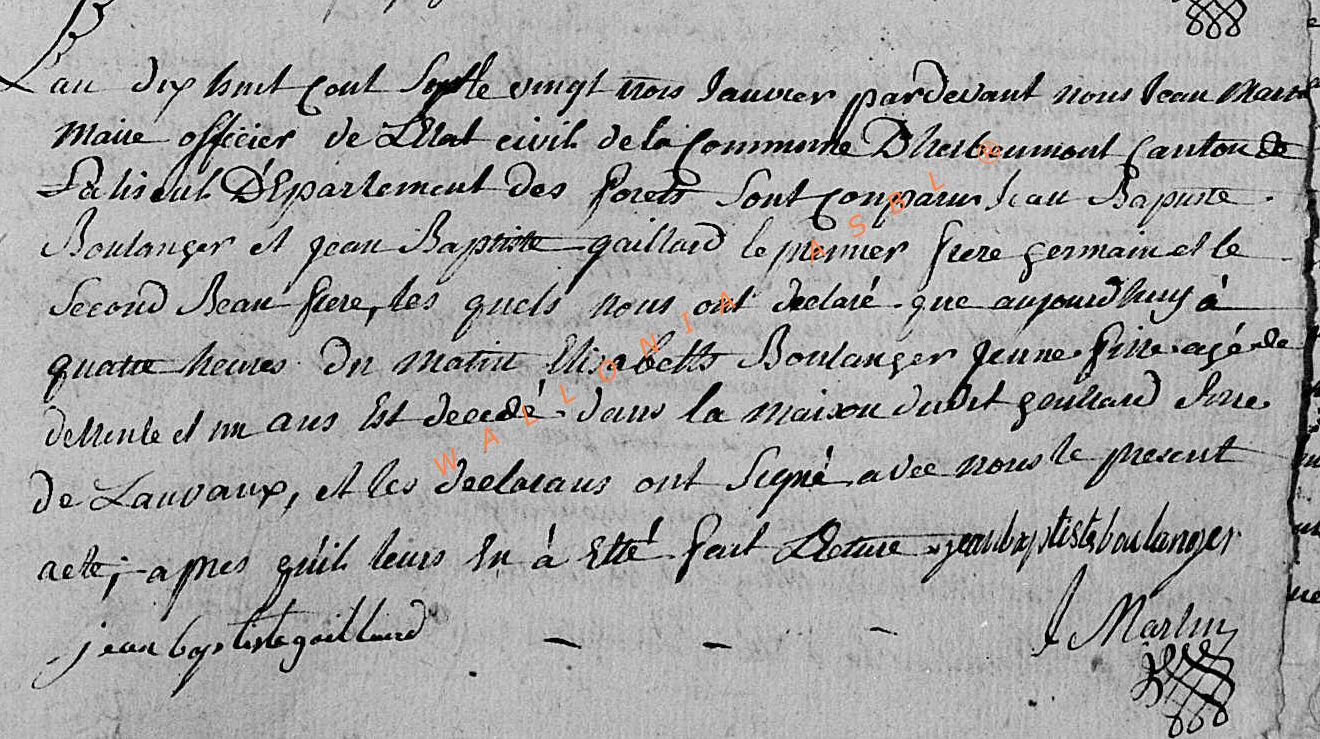 L'an dix huit cent Septe vingt trois Janvier pardevant nous Jean Marti
Maire officier de L'Etat civil de la Commune D'herbeumont Canton de
Paliseul D'Epartement des forets Sont comparus Jean Baptiste
Boulanger et jean Baptiste gaillard le premier frere germain et le
Second Beau frere, les quels nous ont declaré que aujourdhuy à
quatre heures du matin Elisabeth Boulanger jeune fille agé de
de trente et un ans Est decedé dans la maison dudit gaillard
de Lauvaux, et les declarans ont Signé avec nous le present
acte, apres qu'il leurs En à Etté fait Lecture jean baptiste boulanger
jean baptiste gaillard - - - J Martin
WALLONIA ASBL ®